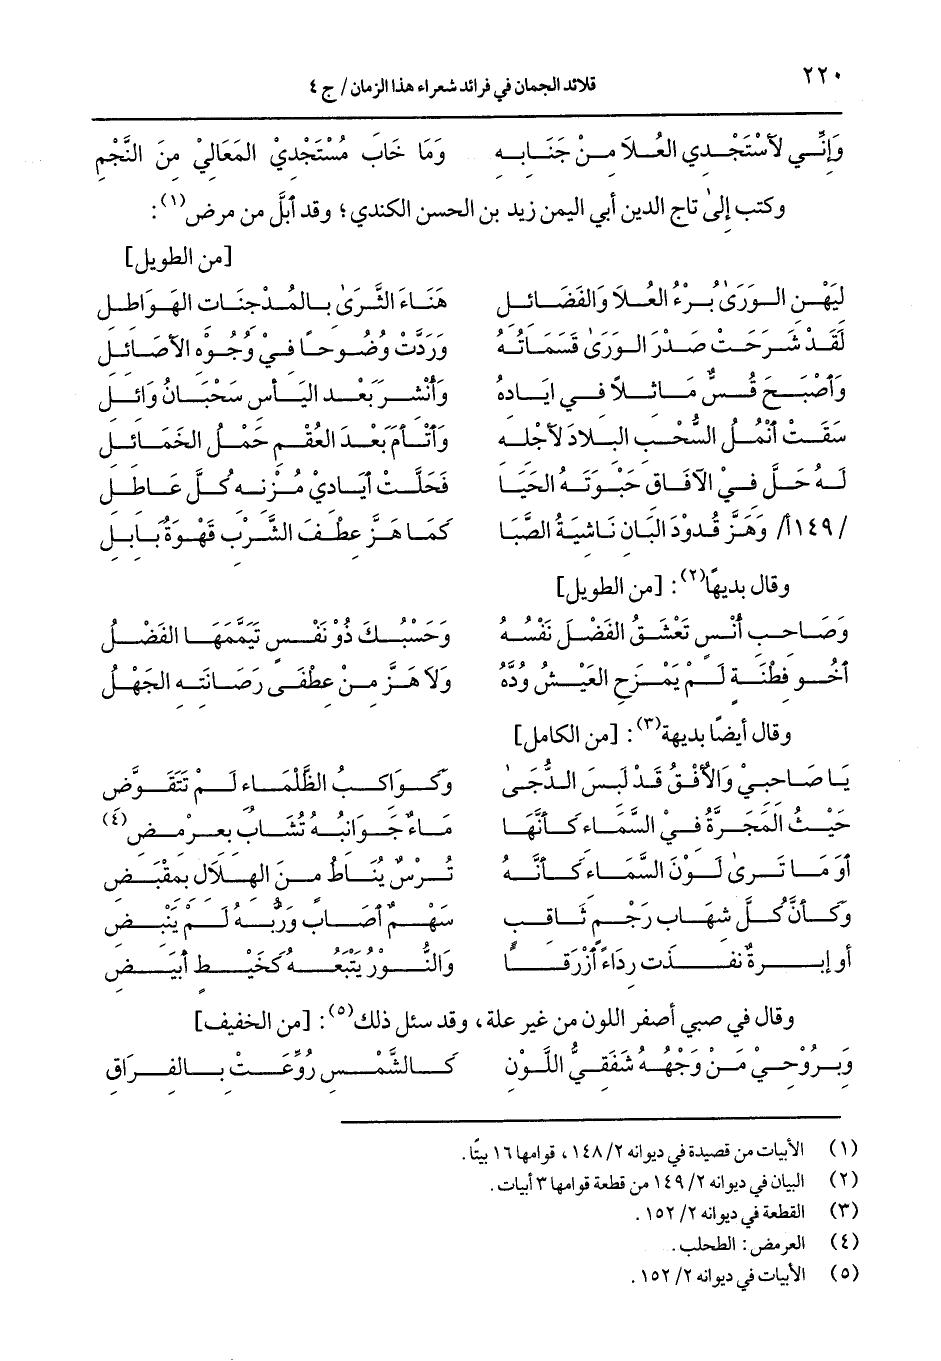 ٢٢٠
قلائد الجمان في فرائد شعراء هذا الزمان/ ج ٤
وَإنِّي لأَسْتَجْدي العُلَا منْ جَنَابِه وَمَا خَابَ مُسْتَجْدِيْ المَعَاليْ مِنَ النَّجْمِ
وكتب إلىٰ تاج الدين أبي اليمن زيد بن الحسن الكندي؛ وقد أبلَّ من مرض(١):
[من الطويل]
لِيَهْنِ الوَرَىٰ بُرْءُ العُلَا وَالفَضَائِلِ هَنَاءَ الثَّرَىٰ بالمُدْجِنَات الهَوَاطِلِ
لَقَدْ شَرَحَتْ صَدْرَ الوَرَىٰ قَسَمَاتُهُ وَرَدَّتْ وُضُوحاً فِيْ وُجُوْه الأَصَائِلِ
وَأَصْبَحَ قُسٌّ مَاثِلاً فِي ايَادهُ وَأَنْشَرَ بَعْد اليَأْسِ سَحْبَانُ وَائِلِ
سَقَتْ أنْمُلُ السُّحْبِ البلَادَ لأَجْلِه وَأتْأَمَ بَعْدَ العُقْمِ حَمْلُ الخَمَائِلِ
لَهُ حَلَّ فِيْ الآفَاق حَبْوَتَهُ الحَيَا فَحَلَّتْ أيَادِيْ مُزْنِه كُلَّ عَاطِلِ
/١٤٩أ/ وَهَزَّ قُدودَ البَان نَاشِيَةُ الصَّبَا كَمَا هَزَّ عِطْفَ الشَّرْبِ قَهْوَةُ بَابِلِ
وقال بديهًا(٢): [من الطويل]
وَصَاحبِ أُنْسٍ تَعْشَقُ الفَضْلَ نَفْسُهُ وَحَسْبُكَ ذُو نَفْسٍ تَيَمَّمَهَا الفَضْلُ
أخُو فِطْنَة لَمْ يَمْزحِ العَيْشُ وُدَّهُ وَلَا هَزَّ مِنْ عِطْفَى رَصَانَتِه الجَهْلُ
وقال أيضًا بديهة(٣): [من الكامل]
يَا صَاحبيْ وَالأُفْقُ قَدْ لَبِسَ الدُّجَىٰ وَكَوَاكِبُ الظَّلْمَاء لَمْ تَتَقَوَّضِ
حَيْثُ المَجَرَّةُ فِيْ السَّمَاء كَأنَّهَا مَاءٌ جَوَانِبُهُ تُشَابُ بِعرمِضِ(٤)
أوَ مَا تَرىٰ لَوْنَ السَّمَاء كَأنَّهُ تُرْسٌ يُنَاطُ مِنَ الهلَالِ بِمَقْبَضِ
وَكَأنَّ كُلَّ شِهَابِ رَجْمٍ ثَاقِبٍ سَهْمٌ أصَابَ وَرَبُّهُ لَمْ يَنْبِضِ
أو إبرةٌ نَفَذَت رِدَاءً أزْرَقاً وَالنُّورُ يَتْبَعُهُ كَخَيْطٍ أَبْيَضِ
وقال في صبي أصفر اللون من غير علة، وقد سئل ذلك(٥): [من الخفيف]
وَبِرُوْحِيْ مَنْ وَجْهُهُ شَفَقِيُّ اللَّوْنِ كَالشَّمْسِ رُوِّعَتْ بِالفِرَاقِ
(١) الأبيات من قصيدة في ديوانه ٢/ ١٤٨، قوامها ١٦ بيتًا.
(٢) البيان في ديوانه ٢/ ١٤٩ من قطعة قوامها ٣ أبيات.
(٣) القطعة في ديوانه ٢/ ١٥٢.
(٤) العرمض: الطحلب.
(٥) الأبيات في ديوانه ٢/ ١٥٢.